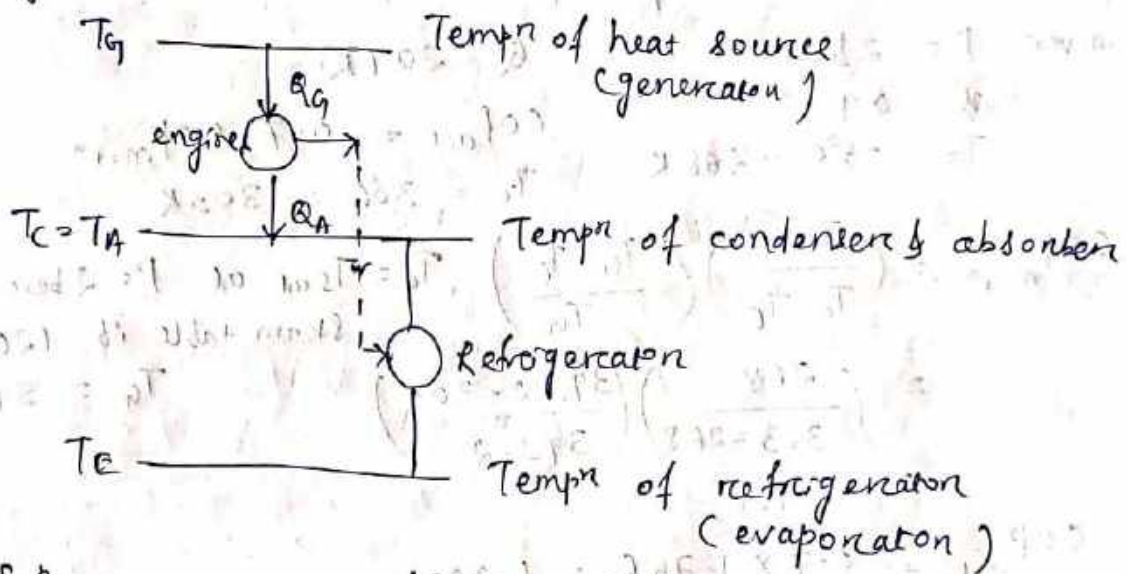 TG Tempn of heat source
(genercaton)
QG
engine
QA
TC = TA Tempn of condenser & absorber
W
Refrogercaton
TE Tempn of refrigeraton
(evaporcaton)